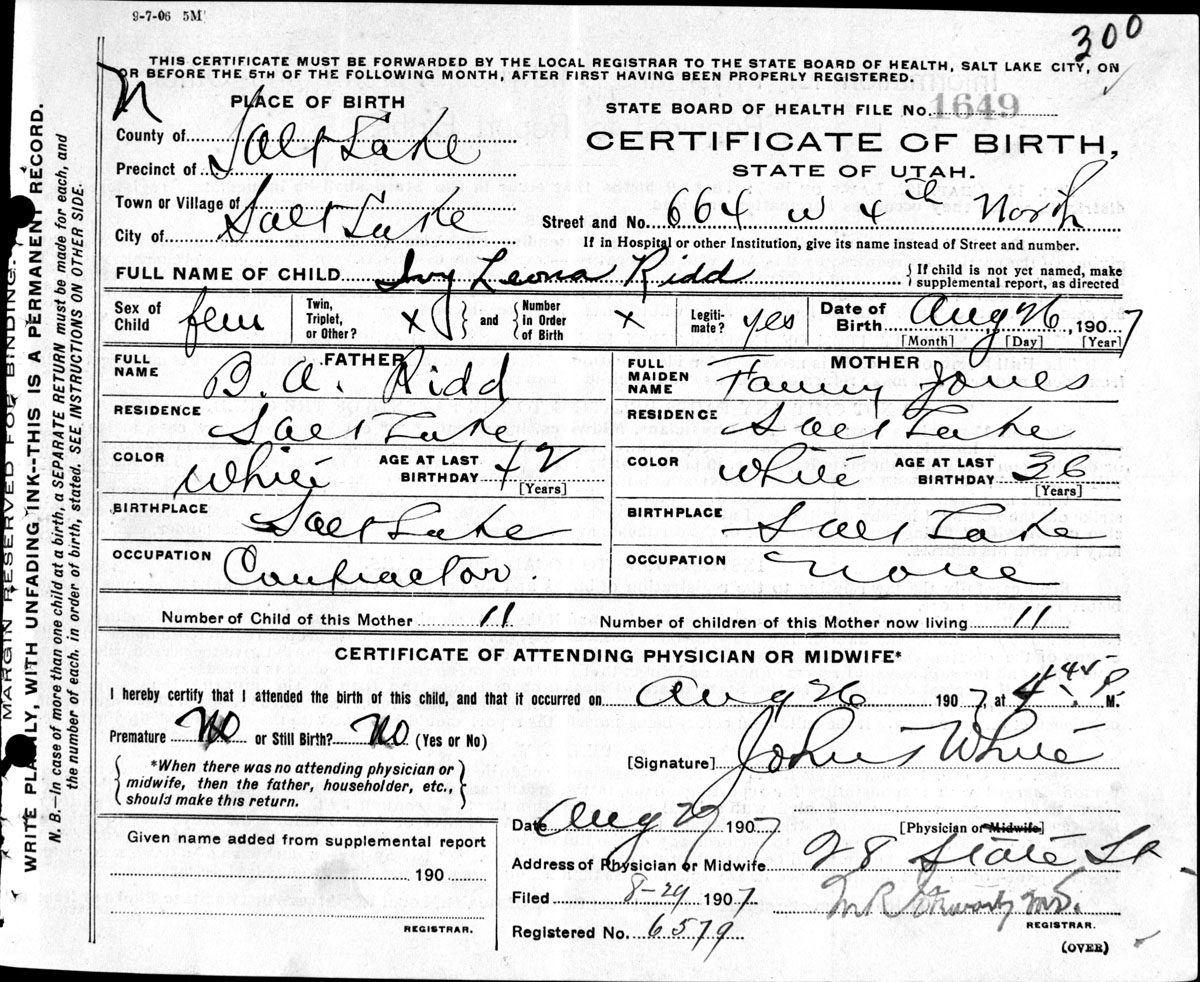 9-7-06 5M
300
THIS CERTIFICATE MUST BE FORWARDED BY THE LOCAL REGISTRAR TO THE STATE BOARD OF HEALTH, SALT LAKE CITY, ON
OR BEFORE THE 5TH OF THE FOLLOWING MONTH, AFTER FIRST HAVING BEEN PROPERLY REGISTERED.
N
PLACE OF BIRTH
County of Salt Lake
Precinct of
Town or Village of
City of Salt Lake
STATE BOARD OF HEALTH FILE No. 1649
CERTIFICATE OF BIRTH,
STATE OF UTAH.
Street and No. 664 W 4th North
If in Hospital or other Institution, give its name instead of Street and number.
FULL NAME OF CHILD Ivy Leona Ridd
{ If child is not yet named, make
supplemental report, as directed
Sex of Child fem
Twin, Triplet, or Other? X } and { Number In Order of Birth X
Legiti-mate? yes
Date of Birth Aug 26, 1907
[Month] [Day] [Year]
FATHER
FULL NAME B. A. Ridd
RESIDENCE Salt Lake
COLOR White AGE AT LAST BIRTHDAY 42
[Years]
BIRTHPLACE Salt Lake
OCCUPATION Contractor.
MOTHER
FULL MAIDEN NAME Fanny Jones
RESIDENCE Salt Lake
COLOR White AGE AT LAST BIRTHDAY 36
[Years]
BIRTHPLACE Salt Lake
OCCUPATION None
Number of Child of this Mother 11 Number of children of this Mother now living 11
CERTIFICATE OF ATTENDING PHYSICIAN OR MIDWIFE*
I hereby certify that I attended the birth of this child, and that it occurred on Aug 26 1907, at 4 45 P. M.
Premature No or Still Birth? No (Yes or No)
{ *When there was no attending physician or
midwife, then the father, householder, etc.,
should make this return. }
[Signature] John White
Date Aug 29 1907 [Physician or Midwife]
Address of Physician or Midwife 28 State St
Filed 8-29 1907
M.D.
REGISTRAR.
Registered No. 6579
(OVER)
Given name added from supplemental report
190
REGISTRAR.
MARGIN RESERVED FOR BINDING.
WRITE PLAINLY, WITH UNFADING INK--THIS IS A PERMANENT RECORD.
N. B.--In case of more than one child at a birth, a SEPARATE RETURN must be made for each, and
the number of each, in order of birth, stated. SEE INSTRUCTIONS ON OTHER SIDE.